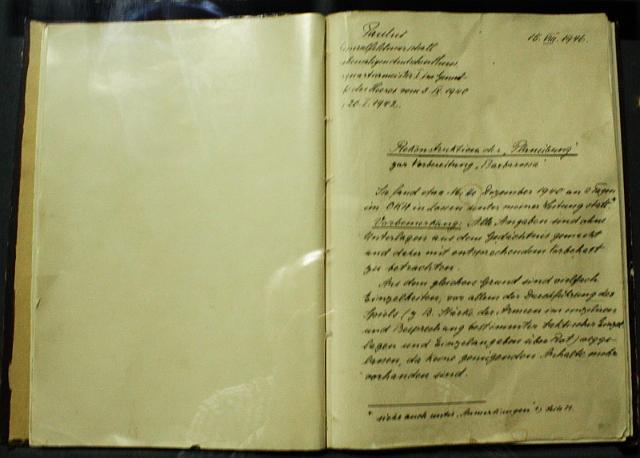 Paulus
16. VIII. 1946.
Generalfeldmarschall
quartiermeister I im General
des Heeres vom 3. IX. 1940
20. I. 1942.
Rekonstruktion der „Planübung"
zur Vorbereitung „Barbarossa"
Sie fand etwa Dezember 1940 an 2 Tagen
im OKH in Zossen unter meiner Leitung statt.*
Vorbemerkung: Alle Angaben sind ohne
Unterlagen aus dem Gedächtnis gemacht
und daher mit entsprechendem Vorbehalt
zu betrachten.
Aus dem gleichen Grund sind vielfach
Einzelheiten, vor allem der Durchführung des
Spiels (z. B. Stärke der Armeen im einzelnen
und Besprechung bestimmter taktischer Einzel
lagen und Einzelangaben über Rot) wegge-
lassen, da keine genügenden Anhalte mehr
vorhanden sind.
* siehe auch unter „Anmerkungen"